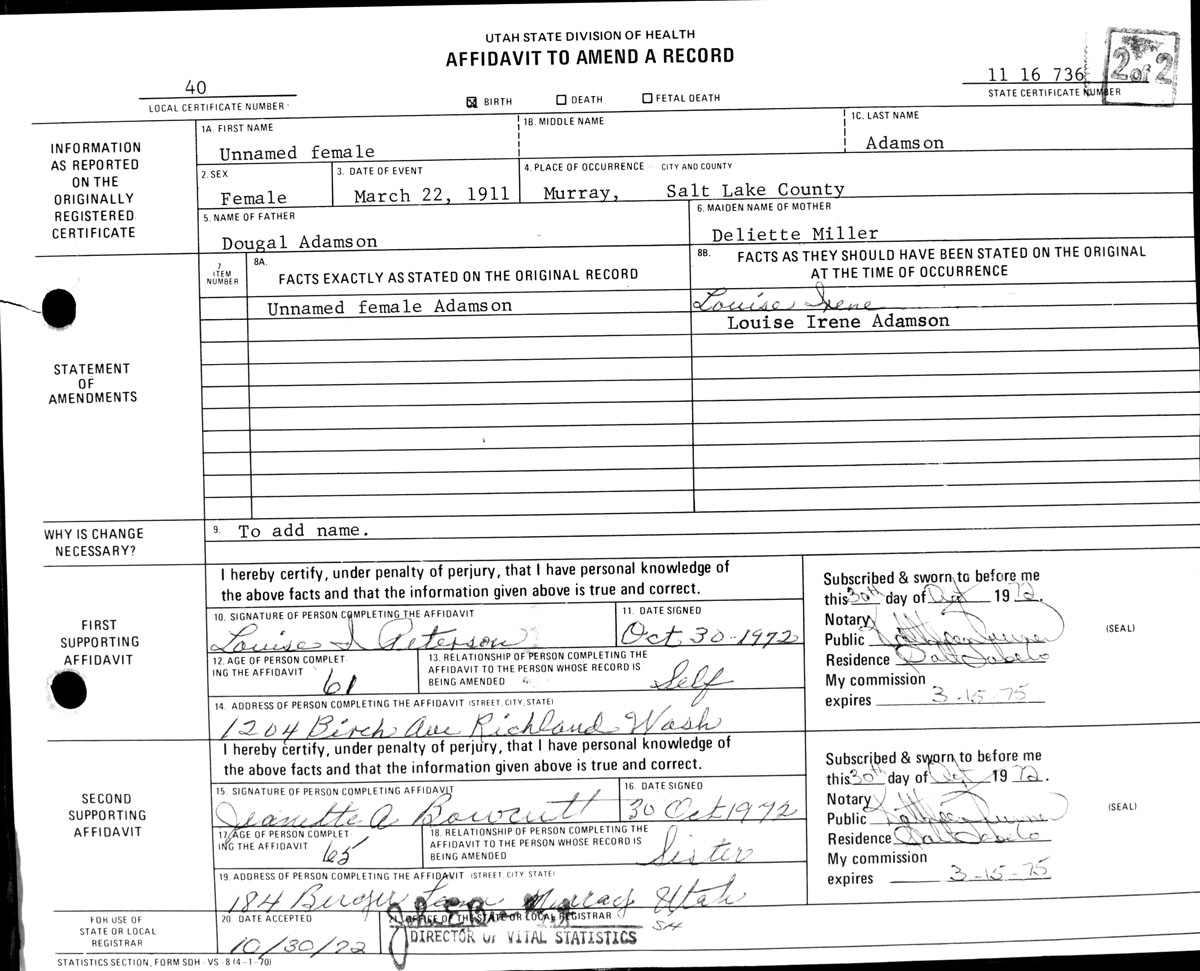 UTAH STATE DIVISION OF HEALTH
AFFIDAVIT TO AMEND A RECORD
2 of 2
40
LOCAL CERTIFICATE NUMBER
☒ BIRTH ☐ DEATH ☐ FETAL DEATH
11 16 736
STATE CERTIFICATE NUMBER
INFORMATION
AS REPORTED
ON THE
ORIGINALLY
REGISTERED
CERTIFICATE
1A. FIRST NAME
Unnamed female
1B. MIDDLE NAME
1C. LAST NAME
Adamson
2. SEX
Female
3. DATE OF EVENT
March 22, 1911
4. PLACE OF OCCURRENCE CITY AND COUNTY
Murray, Salt Lake County
5. NAME OF FATHER
Dougal Adamson
6. MAIDEN NAME OF MOTHER
Deliette Miller
STATEMENT
OF
AMENDMENTS
7
ITEM
NUMBER
8A.
FACTS EXACTLY AS STATED ON THE ORIGINAL RECORD
8B. FACTS AS THEY SHOULD HAVE BEEN STATED ON THE ORIGINAL
AT THE TIME OF OCCURRENCE
Unnamed female Adamson
Louise Irene
Louise Irene Adamson
WHY IS CHANGE
NECESSARY?
9. To add name.
FIRST
SUPPORTING
AFFIDAVIT
I hereby certify, under penalty of perjury, that I have personal knowledge of
the above facts and that the information given above is true and correct.
10. SIGNATURE OF PERSON COMPLETING THE AFFIDAVIT
Louise I Peterson
11. DATE SIGNED
Oct. 30-1972
12. AGE OF PERSON COMPLET
ING THE AFFIDAVIT
61
13. RELATIONSHIP OF PERSON COMPLETING THE
AFFIDAVIT TO THE PERSON WHOSE RECORD IS
BEING AMENDED
Self
14. ADDRESS OF PERSON COMPLETING THE AFFIDAVIT (STREET, CITY, STATE)
1204 Birch Ave Richland Wash
Subscribed & sworn to before me
this 30th day of Oct 1972.
Notary
Public
(SEAL)
Residence
My commission
expires 3-15-75
SECOND
SUPPORTING
AFFIDAVIT
I hereby certify, under penalty of perjury, that I have personal knowledge of
the above facts and that the information given above is true and correct.
15. SIGNATURE OF PERSON COMPLETING THE AFFIDAVIT
Jeanette A Bowcutt
16. DATE SIGNED
30 Oct 1972
17. AGE OF PERSON COMPLET
ING THE AFFIDAVIT
65
18. RELATIONSHIP OF PERSON COMPLETING THE
AFFIDAVIT TO THE PERSON WHOSE RECORD IS
BEING AMENDED
Sister
19. ADDRESS OF PERSON COMPLETING THE AFFIDAVIT (STREET, CITY, STATE)
184 Berger Lane Murray Utah
Subscribed & sworn to before me
this 30th day of Oct 1972.
Notary
Public
(SEAL)
Residence
My commission
expires 3-15-75
FOR USE OF
STATE OR LOCAL
REGISTRAR
20. DATE ACCEPTED
10/30/72
21. OFFICE OF THE STATE OR LOCAL REGISTRAR
DIRECTOR OF VITAL STATISTICS
STATISTICS SECTION, FORM SDH - VS - 8 (4-1-70)